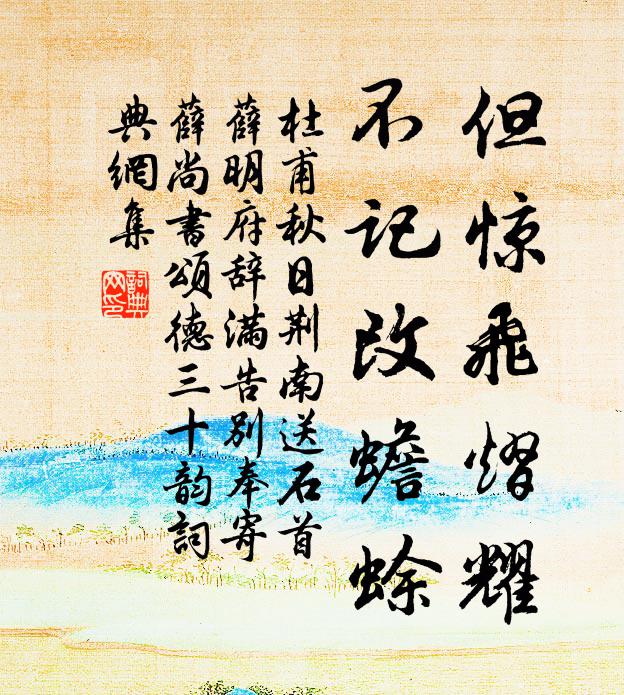 但惊飛熠耀
不记改蟾蜍
杜甫秋日荆南送石首
薛明府辞满告别奉寄
薛尚書頌德三十韵詞
典網集
詞典網印